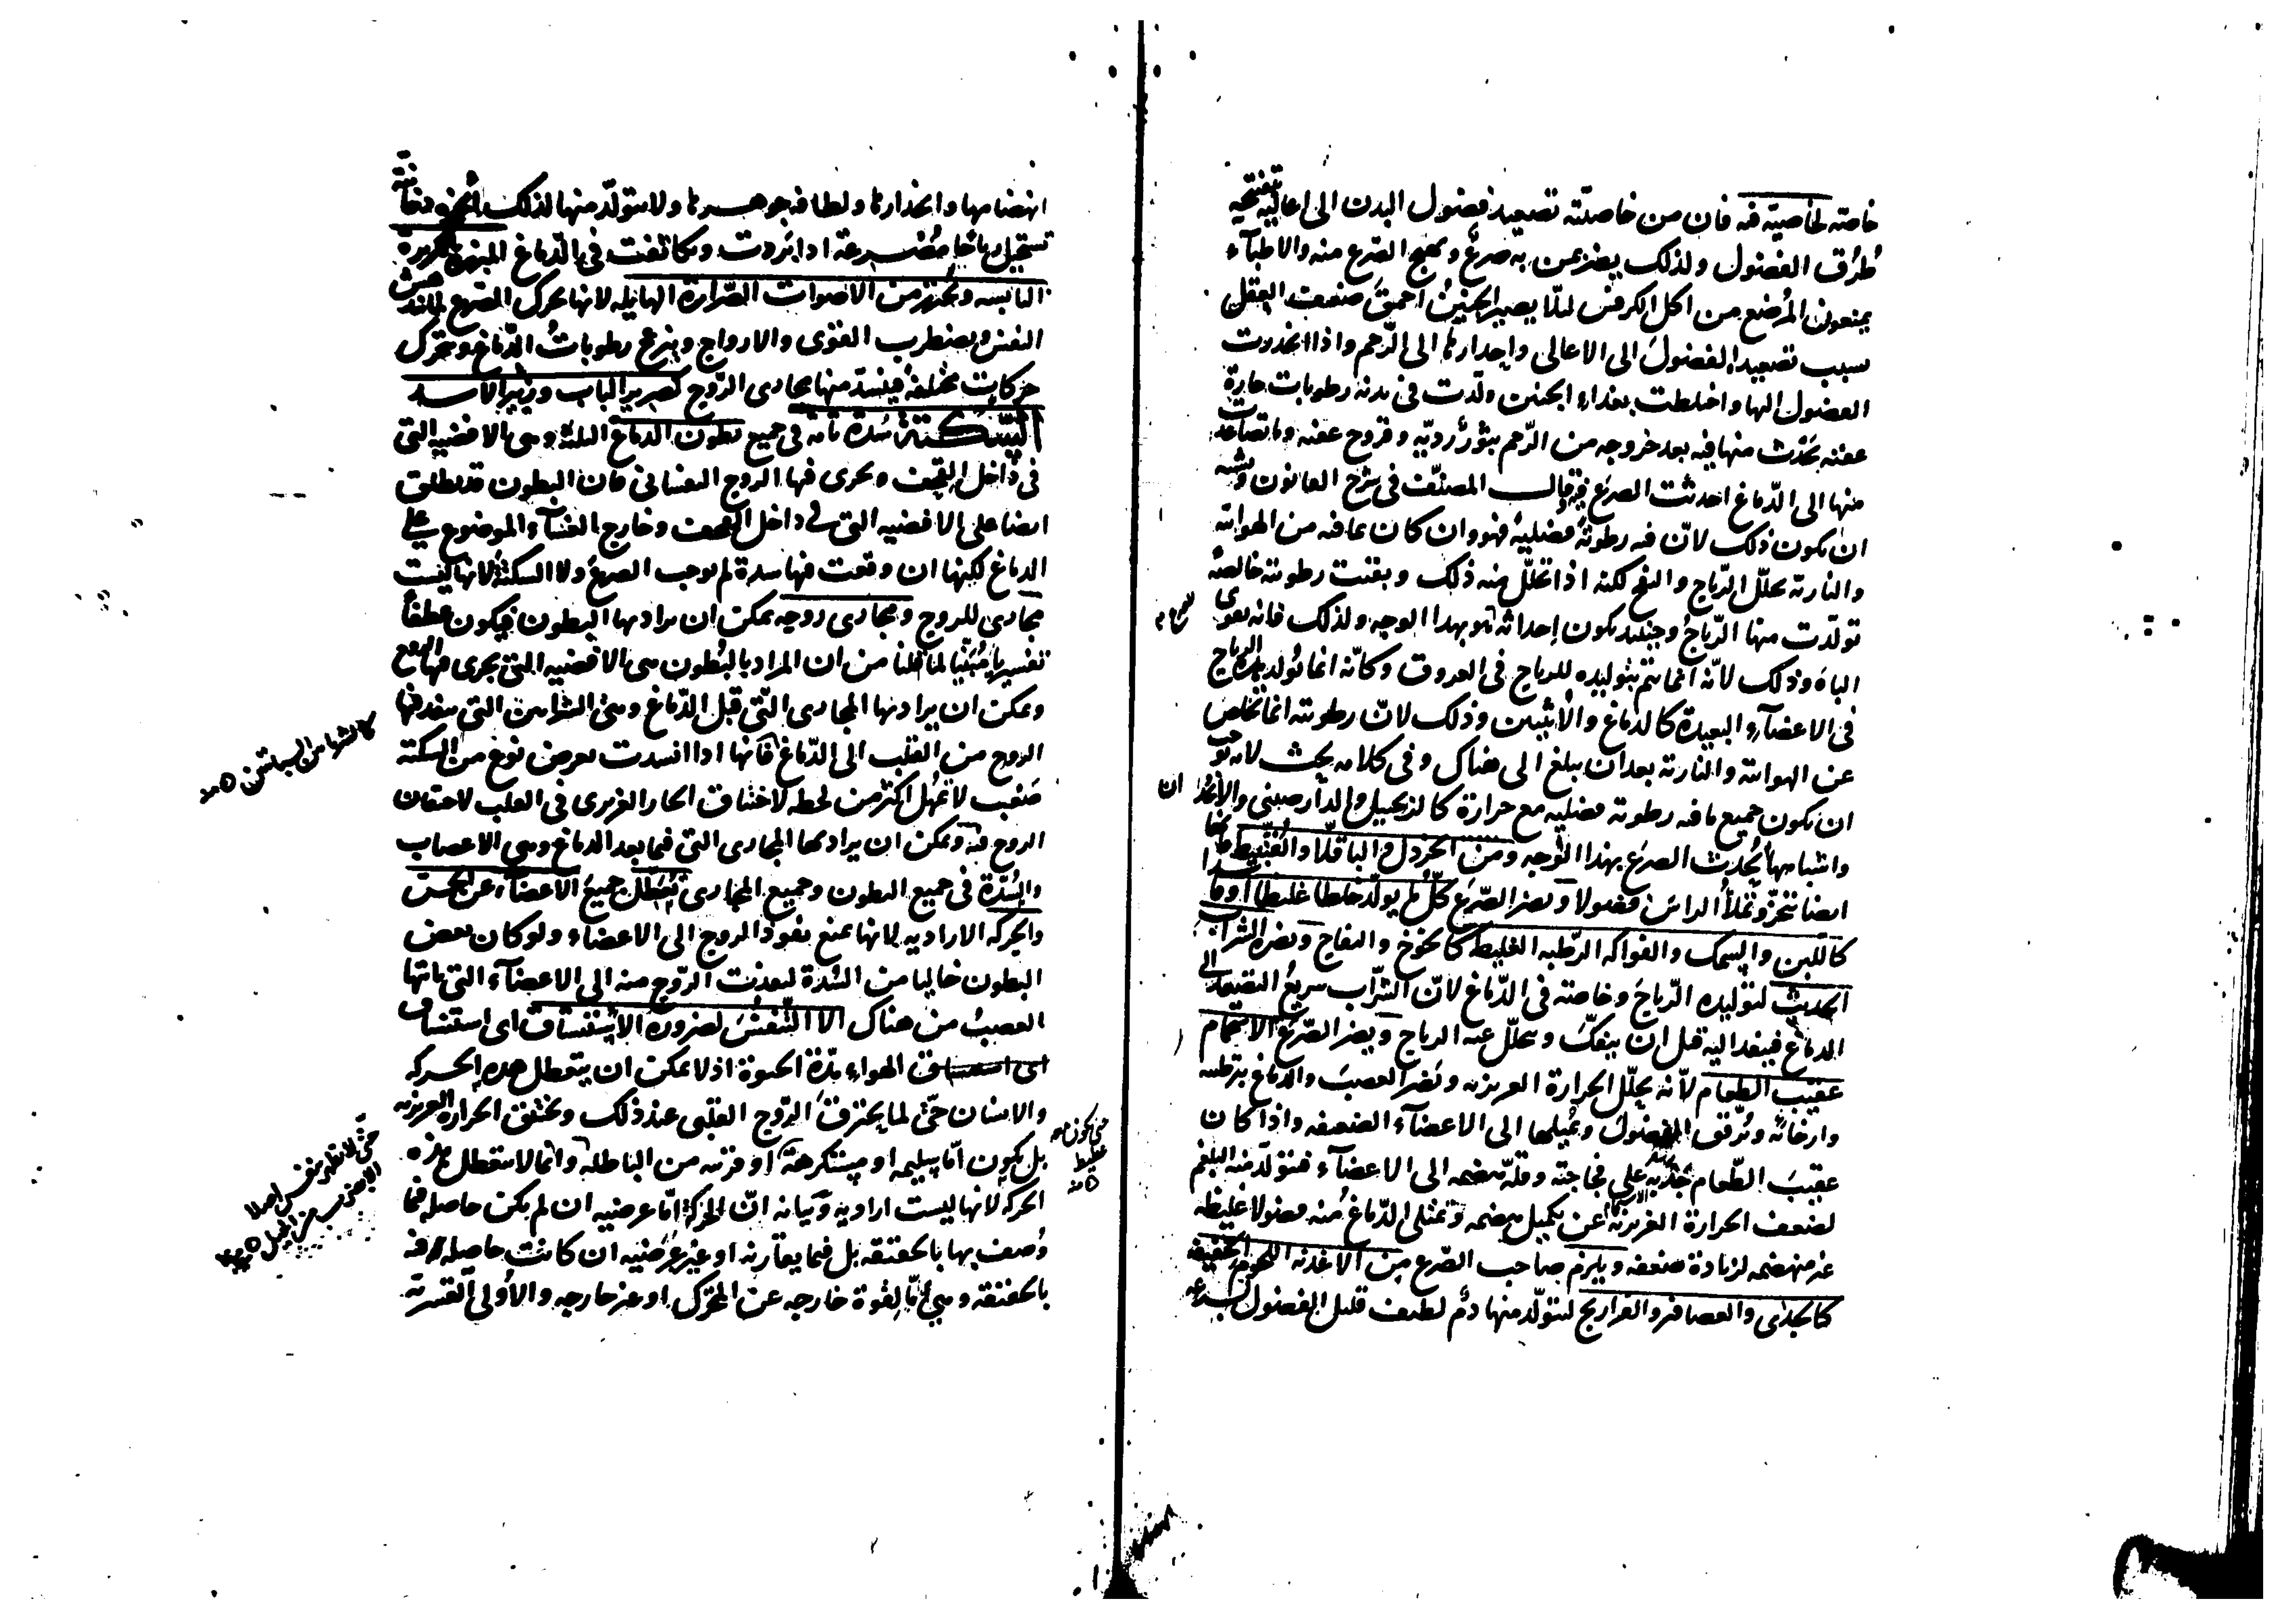 خاصته لخاصية فيه فان من خاصيته تصعيد فضول البدن الى اعاليه بتفتيحه
طُرُق الفضول ولذلك يضر بمن به صرع ويهيج الصرع منه والاطباء
يمنعون المُرضع من اكل الكرفس لئلا يصير الجنين احمق ضعيف العقل
بسبب تصعيد الفضول الى الاعالى وإحدارها الى الرّحم واذا انحدرت
الفضول اليها واختلطت بغذاء الجنين ولّدت فى بدنه رطوبات حارة
عفنه يحدث منها فيه بعد خروجه من الرّحم بثور رديّه وقروح عفنه وما تصاعدت
منها الى الدّماغ احدثت الصرع فيه قال المصنّف فى شرح القانون ويشبه
ان يكون ذلك لانّ فيه رطوبة فضلية فهو وان كان بما فيه من الهوائيه
والناريه يحلّل الرّياح والنفخ لكنه اذا تحلّل منه ذلك وبقيت رطوبته خالصة
تولّدت منها الرّياح وحينئذ يكون إحداثه للصرع بهذا الوجه ولذلك فانه يقوى
الباه وذلك لانّه انما يتم بتوليده للرياح فى العروق وكانّه انما تولد هذه الرياح
فى الاعضاء البعيدة كالدماغ والأنثيين وذلك لانّ رطوبته انما تخلص
عن الهوائيه والناريه بعد ان يبلغ الى هناك وفى كلامه بحث لانه يوجب
ان يكون جميع ما فيه رطوبة فضليه مع حرارة كالزنجبيل والدارصينى والأنجدان
واشباهها يُحدث الصرع بهذا الوجه ومن الخردل والباقلّا والقُنَّبيط
ايضا تتبخر وتملأ الراس فضولا ويضر الصّرع كلّ ما يولّد خلطا غليظا او دما
كاللبن والسمك والفواكه الرّطبه الغليظه كالخوخ والتفاح ويضره الشراب
الحديث لتوليده الرّياح وخاصة فى الدّماغ لانّ الشّراب سريع التصعد الى
الدماغ فينفذ اليه قبل ان ينفكّ ويتحلّل عنه الرياح ويضر الصّرع الاستحمام
عقيب الطعام لانّه يحلّل الحرارة الغريزيه ويضر العصب والدماغ بترطيبه
وارخائه ويُرقّق الفضول ويُميلها الى الاعضاء الضعيفه واذا كان
عقيب الطّعام جذبه على فجاجته وقلّة هضمه الى الاعضاء فيتولّد منه البلغم
لضعف الحرارة الغريزيه عن تكميل هضمه وتمتلى الدّماغ منه فضولا غليظه
غير منهضمه لزيادة ضعفه ويلزم صاحب الصّرع من الاغذيه اللحوم الخفيفه
كالجدى والعصافير والفراريج ليتولّد منها دم لطيف قليل الفضول لسرعه
انهضامها وانحدارها ولطافه جوهرها ولا يتولّد منها لذلك أبخرة دخانية
تستحيل رياحا اذا بردت وتكاثفت فى الدّماغ
اليابسه ويحترز من الاصوات الصّرارة الهايله لانها تحرك الصرع
النفس ويضطرب القوى والارواح وينزعج رطوبات الدّماغ ويتحرك
حركات مختلفه فينسدّ منها مجارى الرّوح كصرير الباب وزئير الاسد
السّكتة سُدة تامه فى جميع بطون الدماغ الثلثه وهى الافضيه التى
فى داخل القحف ويجرى فيها الروح النفسانى فان البطون قد تطلق
ايضا على الافضيه التى فى داخل القحف وخارج الغشاء الموضوع على
الدماغ لكنها ان وقعت فيها سدة لم يوجب الصرع ولا السكتة لانها ليست
مجارى للروح ومجارى روحه يمكن ان يراد بها البطون فيكون عطفا
تفسيريا مُبَيِّنا لما قلنا من ان المراد بالبُطون هى الافضيه التى يجرى فيها الروح
ويمكن ان يراد بها المجارى التّى قبل الدّماغ وهى الشرايين التى ينفذ فيها
الروح من القلب الى الدّماغ فانها اذا انسدت يعرض نوع من السكتة
صَعب لا تمهل اكثر من لحظه لاختناق الحار الغريزى فى القلب لاحتقان
الروح فيه ويمكن ان يراد بها المجارى التى فيما بعد الدماغ وهى الاعصاب
والسُّدّة فى جميع البطون وجميع المجارى تُعَطّل جميع الاعضاء عن الحسّ
والحركه الاراديه لانها تمنع نفوذ الروح الى الاعضاء ولو كان بعض
البطون خاليا من السُّدة لنفذت الرّوح منه الى الاعضاء التى ياتيها
العصب من هناك الا التّنفّس لضرورة الاستنشاق اى استنشاق
الهواء مدّة الحيوة اذ لا يمكن ان يتعطل هذه الحركه
والانسان حىّ لما يحترق الرّوح القلبى عند ذلك ويختنق الحرارة الغريزيه
بل يكون امّا سليمه او مستكرهة او قريبه من الباطله وانما لا يتعطل هذه
الحركه لانها ليست اراديه وبيانه انّ الحركة امّا عرضيه ان لم يكن حاصله فيما
وُصف بها بالحقيقه بل فيما يقارنه او غير عَرَضيه ان كانت حاصله فيه
بالحقيقه وهى امّا لقوة خارجه عن المتحرك او غير خارجه والأولى القسريه
كالشرايين السباتيين